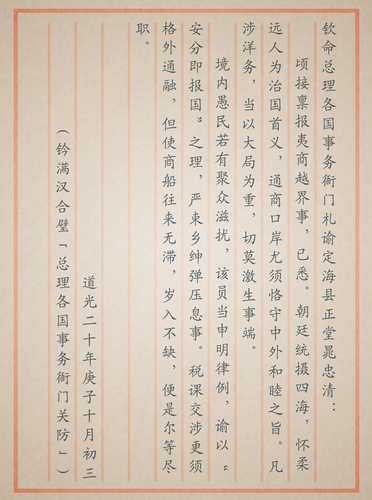 钦命总理各国事务衙门札谕定海县正堂晁忠清：
顷接禀报夷商越界事，已悉。朝廷统摄四海，怀柔
远人为治国首义，通商口岸尤须恪守中外和睦之旨。凡
涉洋务，当以大局为重，切莫激生事端。
境内愚民若有聚众滋扰，该员当申明律例，谕以“
安分即报国”之理，严束乡绅弹压息事。税课交涉更须
格外通融，但使商船往来无滞，岁入不缺，便是尔等尽
职。
道光二十年庚子十月初三
（钤满汉合璧「总理各国事务衙门关防」）